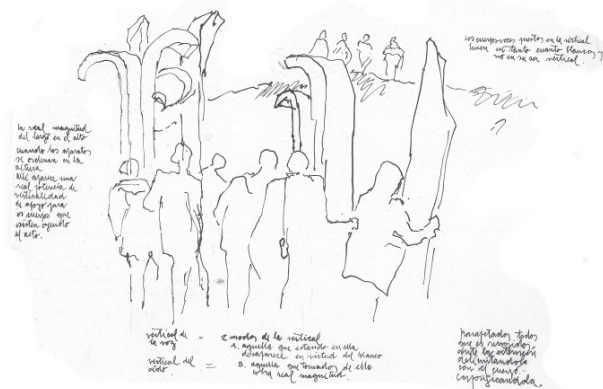 los cuerpos voces puestos en la vertical
lucen en tanto cuanto blancos, y
no en su ser vertical.
la real magnitud
del largo en el alto
cuando los aparatos
se ordenan en la
altura
allí aparece una
real potencia de
verticalidad
de apoyo para
os cuerpos que
existen oyendo
el acto.
vertical de
la voz
vertical del
oído
2 modos de la vertical
1. aquella que estando en ella
desaparece en virtud del blanco
B. aquella que tomados de ella
cobra real magnitud.
parapetados todos
que es recogidos
ante la extensión
delimitándola
con el cuerpo